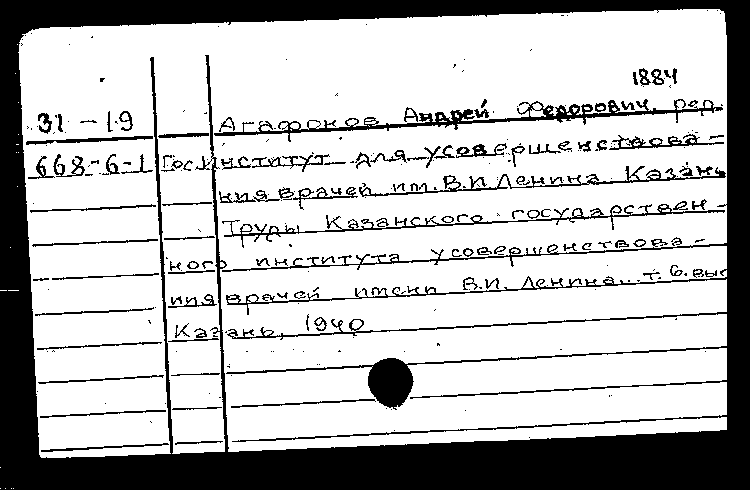 1884
31-19 Агафонов, Андрей Федорович, ред.
668-6-1 Гос. институт для усовершенствова-
ния врачей им. В.И Ленина. Казань
Труды Казанского государствен-
ного института усовершенствова-
ния врачей имени В.И. Ленина.. т. 6. вып
Казань, 1940